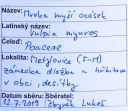 Název: Mrvka myší ocásek
Latinský název:
Vulpia myuros
Čeleď: Poaceae
Lokalita: Metylovice (F-M)
zámecká dlažba u hřbitova
v obci, desítky
Datum sběru: Sbíral:
12.7.2019 Zbyněk Lukeš